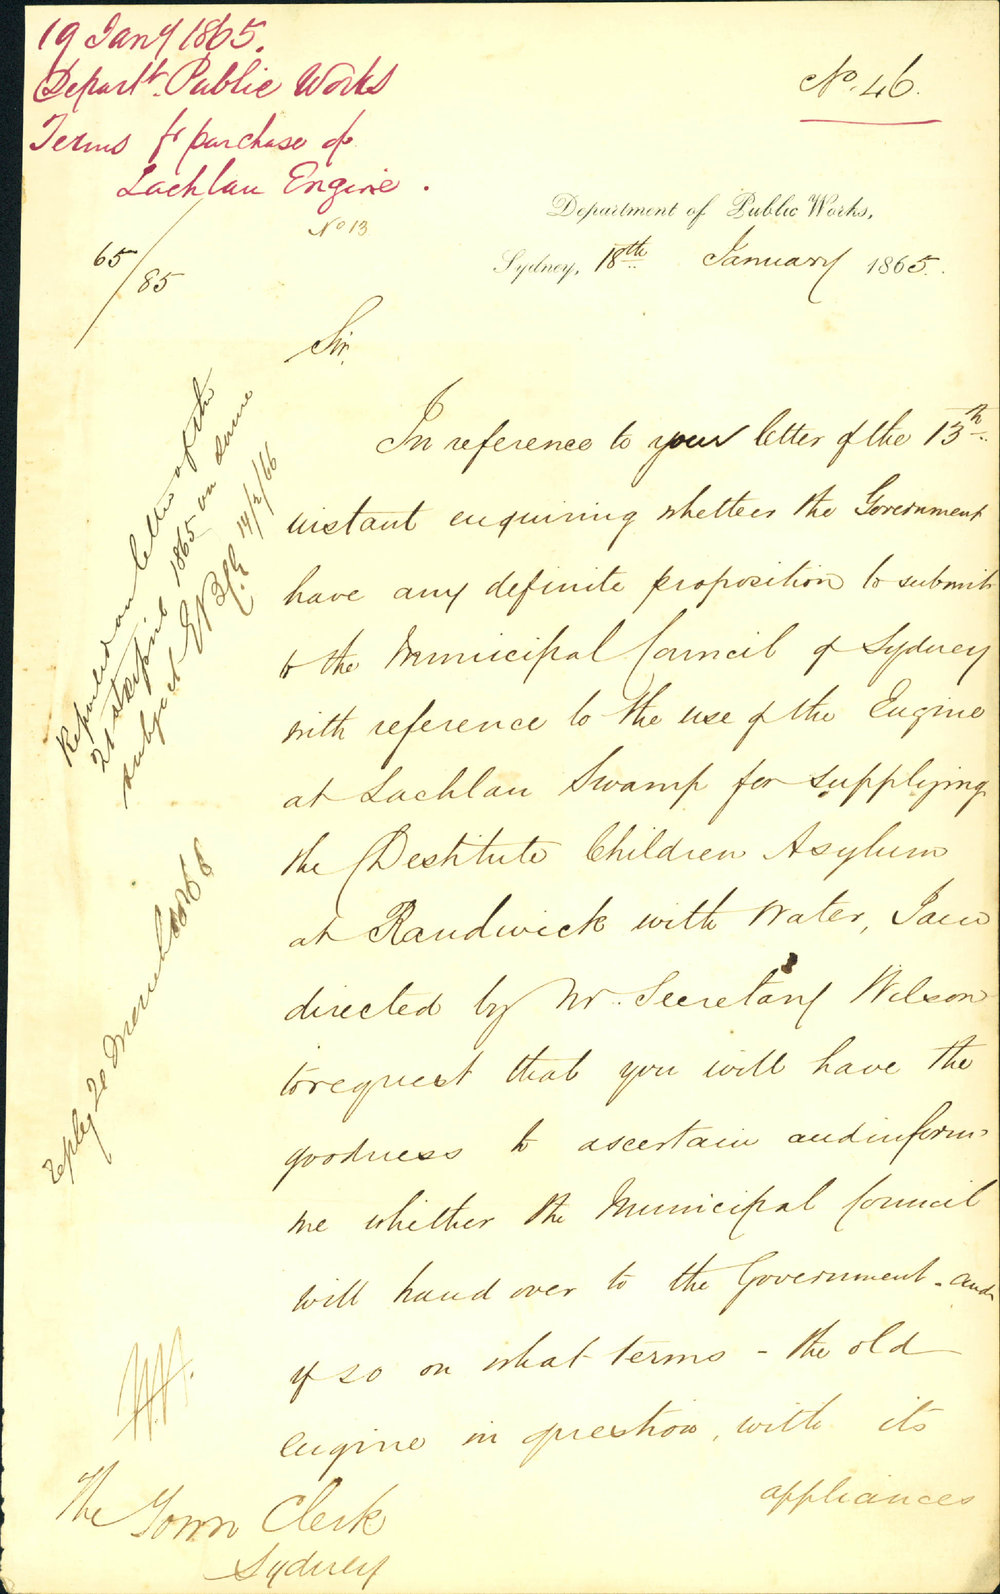 19 Jany 1865.
Depart.t Public Works
Terms for purchase of
Lachlan Engine.
No 13
65/85
No. 46.
Department of Public Works,
Sydney, 18th January 1865.
Sir,
In reference to your letter of the 13th
instant enquiring whether the Government
have any definite proposition to submit
to the Municipal Council of Sydney
with reference to the use of the Engine
at Lachlan Swamp for supplying
the Destitute Children Asylum
at Randwick with water, I am
directed by Mr. Secretary Wilson
to request that you will have the
goodness to ascertain and inform
me whether the Municipal Council
will hand over to the Government - and
if so on what terms - the old
engine in question, with its
appliances
The Town Clerk
Sydney
Reported on letter of the
21st 1865 on same
subject 14/2/66
reply 20 March 1866